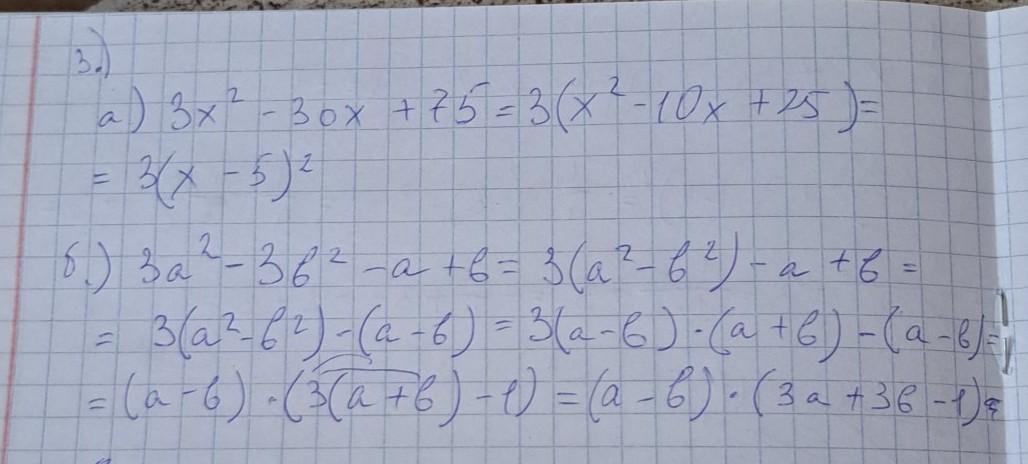 3.)
а) 3x² - 30x + 75 = 3(x² - 10x + 25) =
= 3(x - 5)²
б.) 3a² - 3b² - a + b = 3(a² - b²) - a + b =
= 3(a² - b²) - (a - b) = 3(a - b) · (a + b) - (a - b) =
= (a - b) · (3(a + b) - 1) = (a - b) · (3a + 3b - 1)